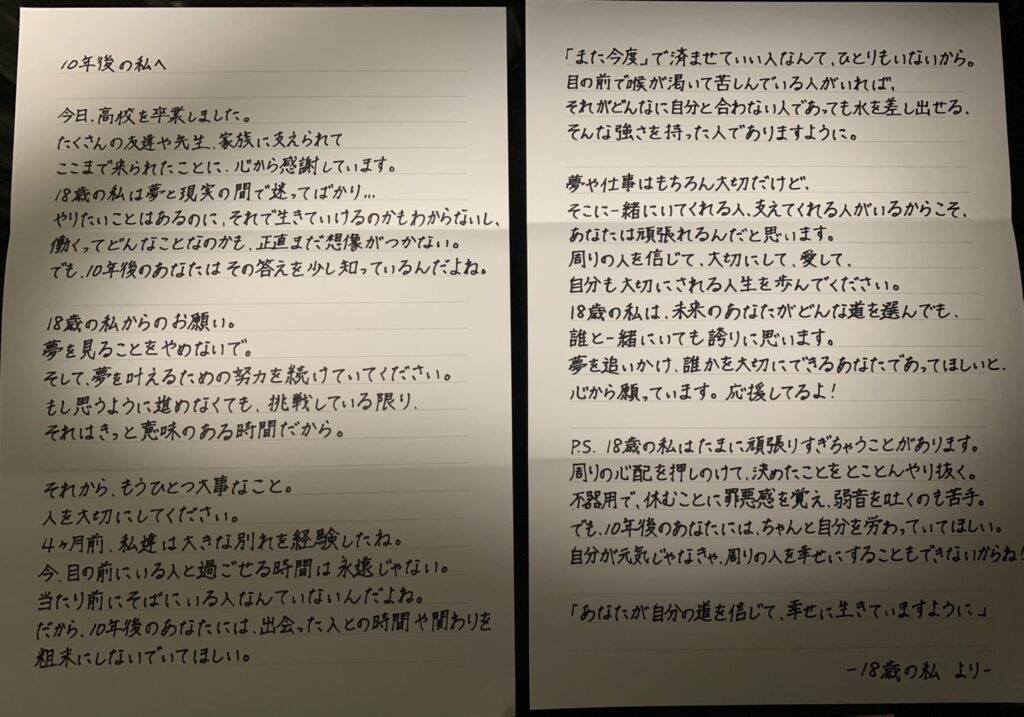 10年後の私へ
今日、高校を卒業しました。
たくさんの友達や先生、家族に支えられて
ここまで来られたことに、心から感謝しています。
18歳の私は夢と現実の間で迷ってばかり...
やりたいことはあるのに、それで生きていけるのかもわからないし、
働くってどんなことなのかも、正直まだ想像がつかない。
でも、10年後のあなたはその答えを少し知っているんだよね。
18歳の私からのお願い。
夢を見ることをやめないで。
そして、夢を叶えるための努力を続けていてください。
もし思うように進めなくても、挑戦している限り、
それはきっと意味のある時間だから。
それから、もうひとつ大事なこと。
人を大切にしてください。
4ヶ月前、私達は大きな別れを経験したね。
今、目の前にいる人と過ごせる時間は永遠じゃない。
当たり前にそばにいる人なんていないんだよね。
だから、10年後のあなたには、出会った人との時間や関わりを
粗末にしないでいてほしい。
「また今度」で済ませていい人なんて、ひとりもいないから。
目の前で喉が渇いて苦しんでいる人がいれば、
それがどんなに自分と合わない人であっても水を差し出せる、
そんな強さを持った人でありますように。
夢や仕事はもちろん大切だけど、
そこに一緒にいてくれる人、支えてくれる人がいるからこそ、
あなたは頑張れるんだと思います。
周りの人を信じて、大切にして、愛して、
自分も大切にされる人生を歩んでください。
18歳の私は、未来のあなたがどんな道を選んでも、
誰と一緒にいても誇りに思います。
夢を追いかけ、誰かを大切にできるあなたであってほしいと、
心から願っています。応援してるよ!
P.S. 18歳の私はたまに頑張りすぎちゃうことがあります。
周りの心配を押しのけて、決めたことをとことんやり抜く。
不器用で、休むことに罪悪感を覚え、弱音を吐くのも苦手。
でも、10年後のあなたには、ちゃんと自分を労わっていてほしい。
自分が元気じゃなきゃ、周りの人を幸せにすることもできないからね!
「あなたが自分の道を信じて、幸せに生きていますように」
-18歳の私 より-